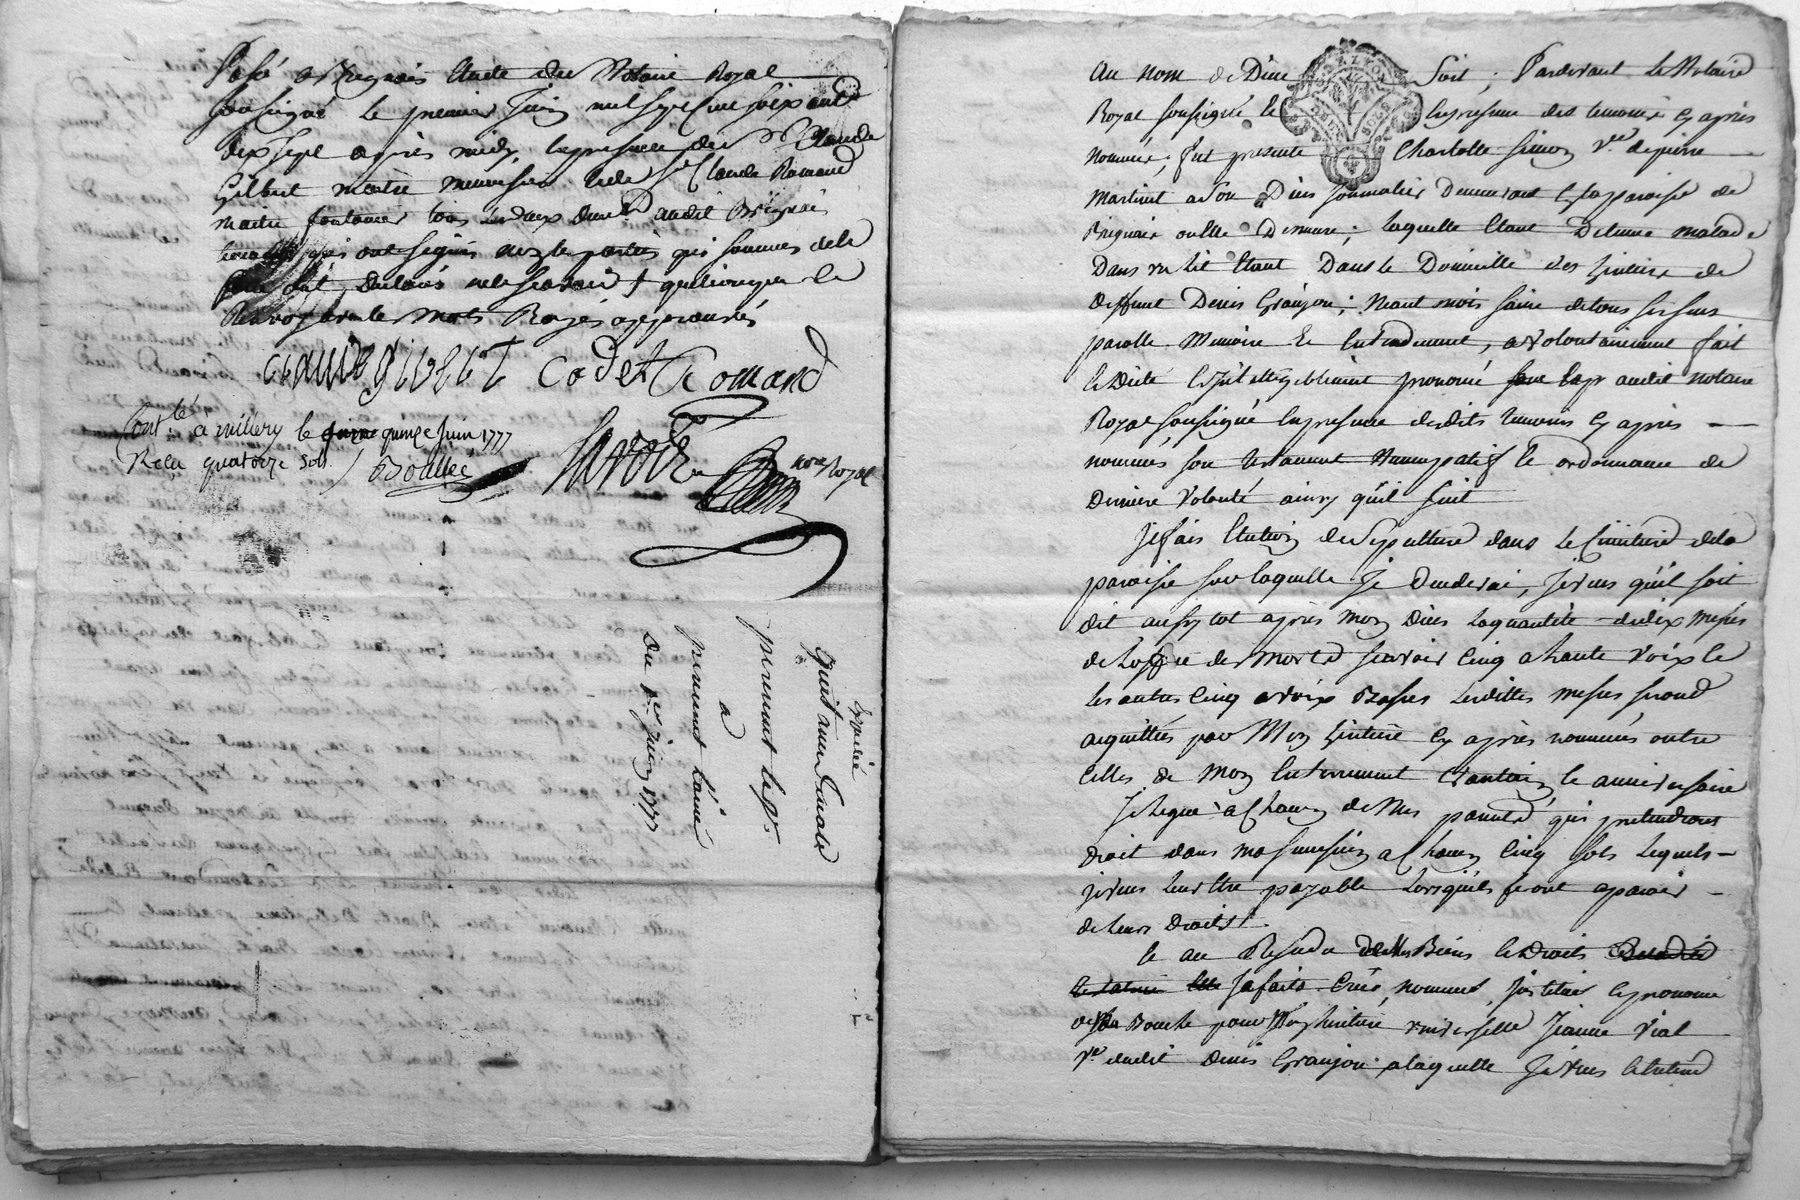 Passé a Brignais Etude du Notaire Royal
soussigné le premier Juin mil sept cent soixante
dix sept après midy, en presence de Sr Claude
Gilbert maître menuisier et de Sr Claude Romand
maitre tous les deux dud. Brignais
temoins qui ont signés non les parties qui sommes de le
faire ont declarés ne le scavoir
les mots Rayés approuvés
claude gilbert Cadet Romand
Contlé à millery le quinze Juin 1777
Reçu quatorze sols Boullée
nore Royal
expedié
quittance Generale
prement legr
a
prement l'ainé
Du 1er Juin 1777
Au nom de Dieu Soit; Pardevant le Notaire
Royal soussigné et en presence des temoins cy après
nommés; fut presente Charlotte Simon Ve de pierre
Martinet a son Vivant Journalier Demeurant en la paroisse de
Brignais ou elle Demeure; laquelle Etant Detenue malade
Dans un lit Etant Dans le Domicille des de
deffunt Denis Granjon; Neant mois saine de tous ses sens
parolle Memoire et Entendement, a volontairement fait
et Dicté et Inteligiblement prononcé audit notaire
Royal soussigné en presence desdits temoins cy après
nommés, son testament Nuncupatif et ordonnance de
Derniere Volonté ainsy qu'il suit
Je fais Election de Sepulture dans le Cimetiere de la
paroisse sur laquelle Je Decederai, Je veus qu'il soit
dit aussytot après mon Deces la quantité de dix Messes
de l'office des Morts scavoir Cinq a haute voix et
les autres Cinq a voix Basses lesdittes messes seront
acquittées par Mon heritiere cy après nommées outre
Celles de mon Enterrement et anniversaire
Je legue a Chacun de Mes parents qui pretendront
droit dans ma succession a Chacun Cinq sols lequels
je veus leur Etre payable lorsqu'ils feront aparoir
de leurs Droits
Et au Residu de Mes Biens et Droits
Jai fais Créé, nommé, Institué et prononcé
de Ma Bouche pour Mon heritiere universelle Jeanne Vial
Ve dudit Denis Granjon a laquelle Je veus